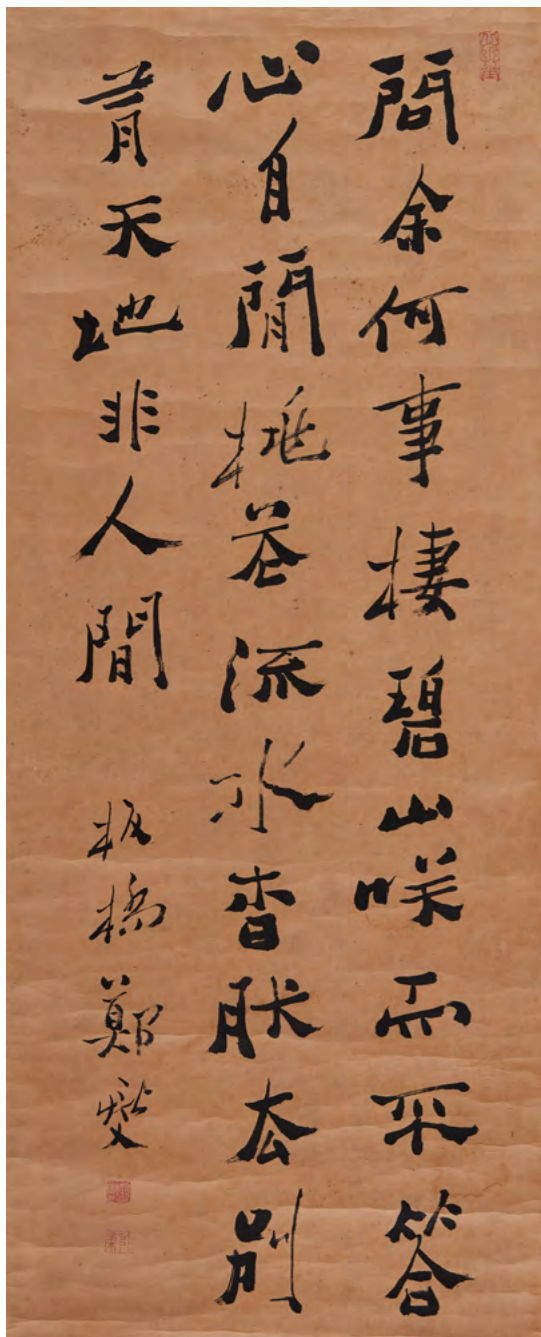 問余何事棲碧山咲而不答
心自閒桃花流水杳肰去別
有天地非人間
板橋鄭燮